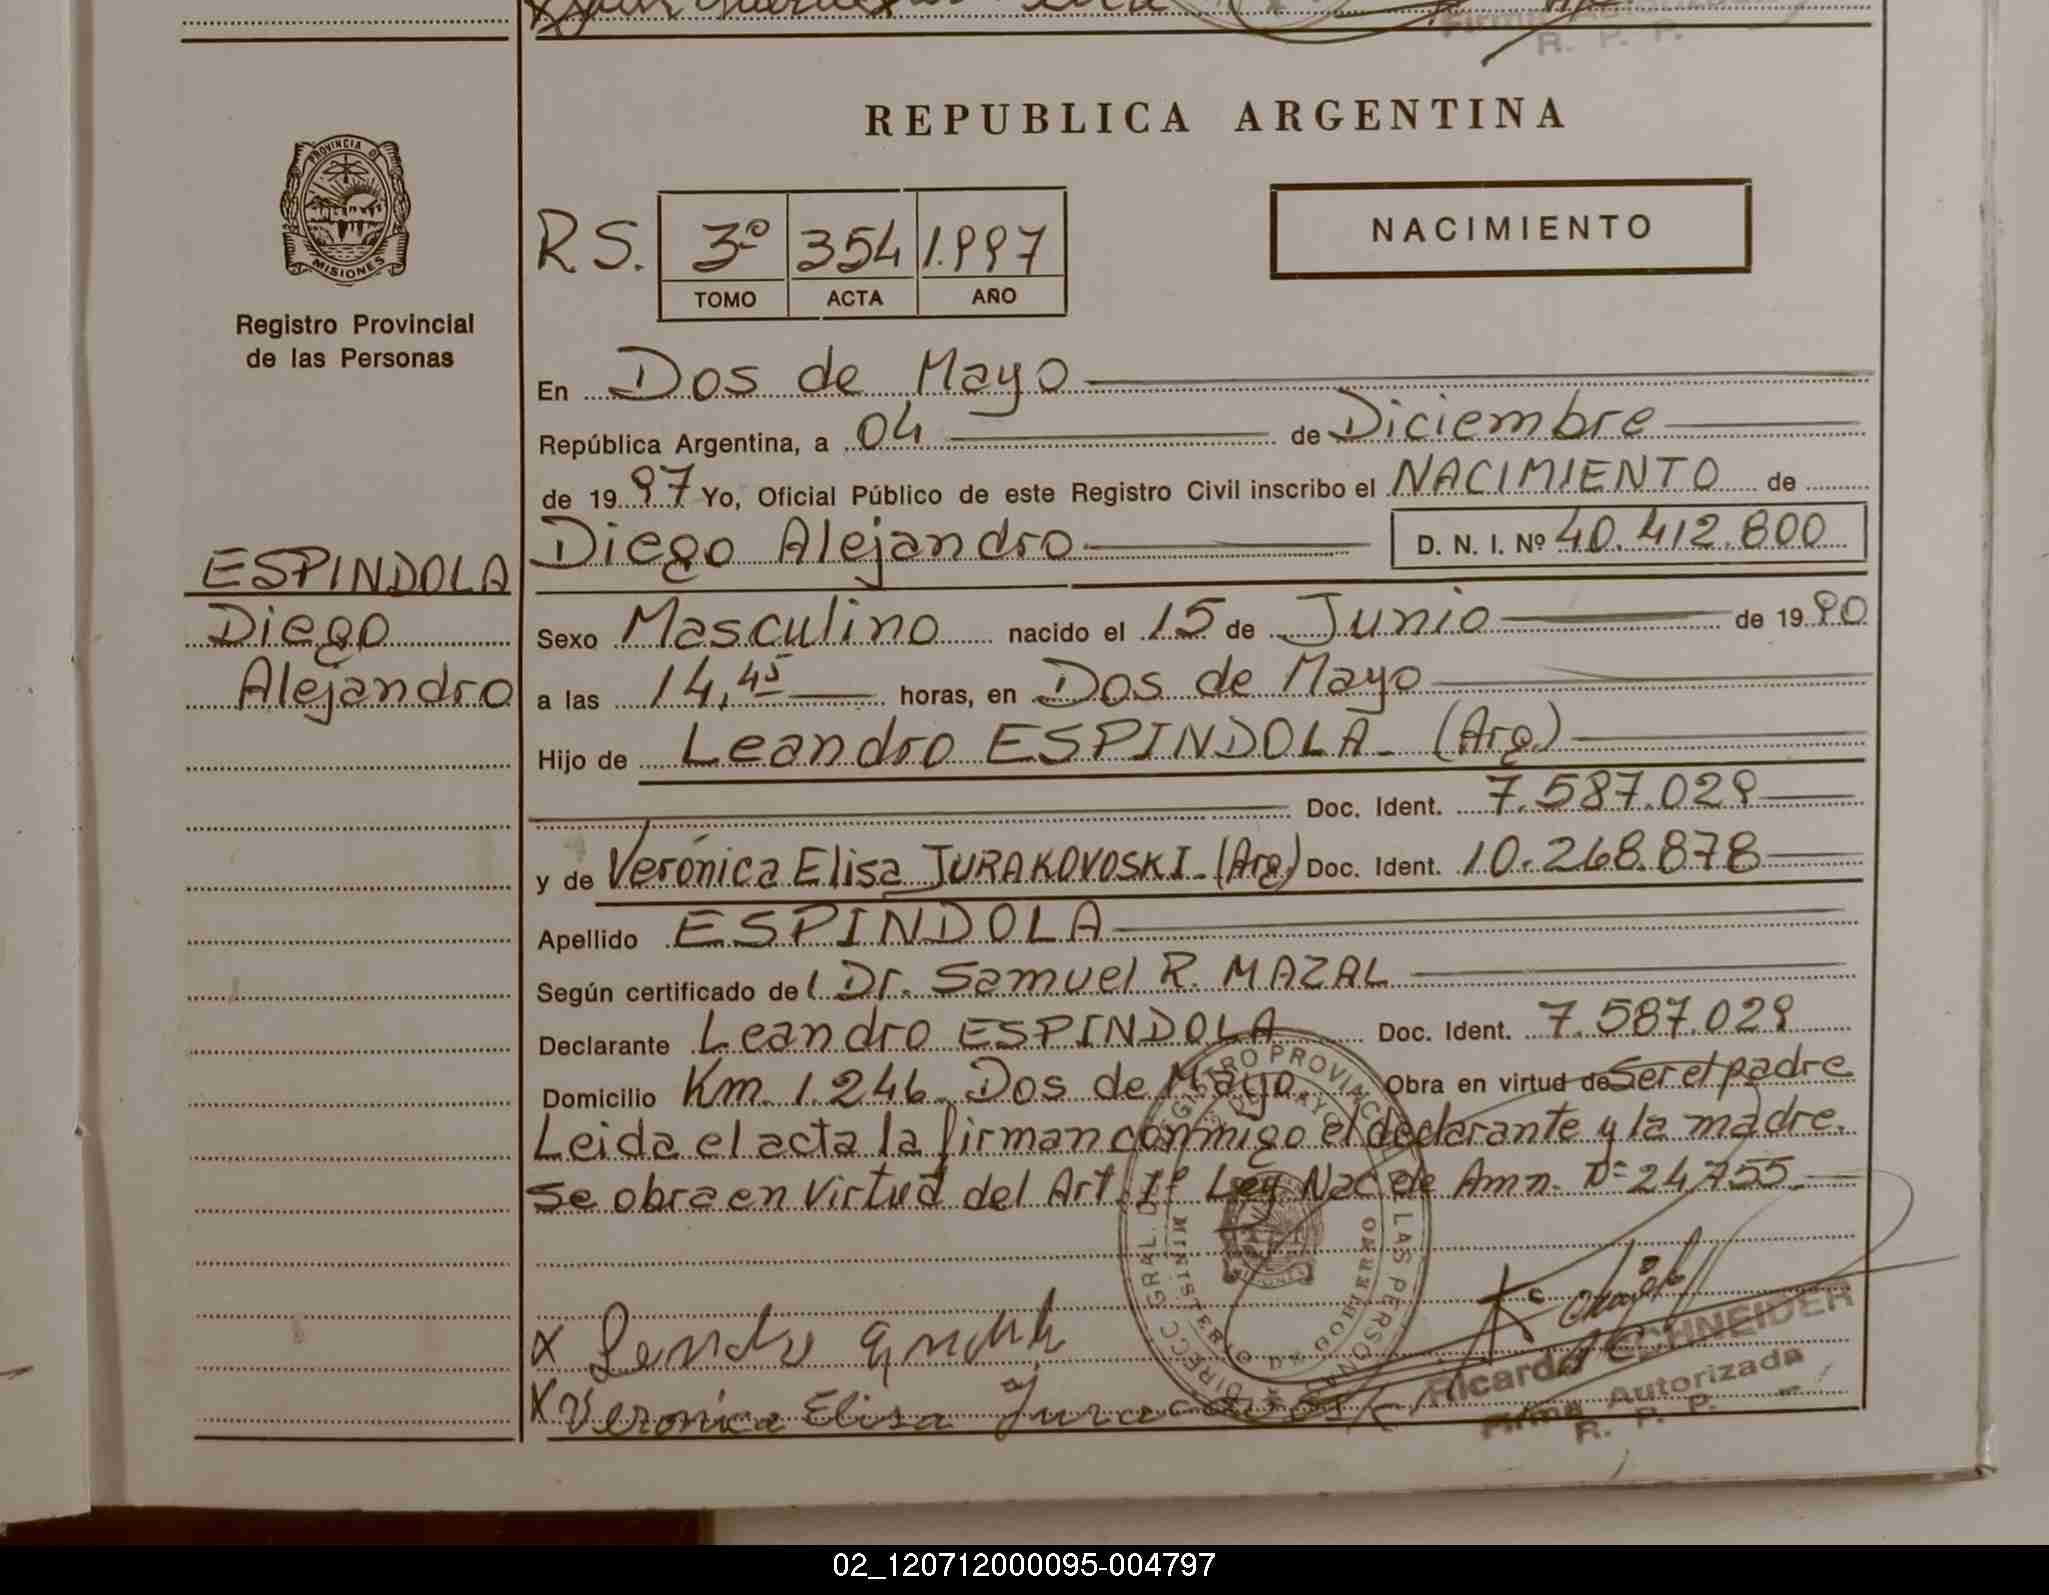 Firma Autorizada
R. P. P.
REPUBLICA ARGENTINA
PROVINCIA D
MISIONES
Registro Provincial
de las Personas
R.S. 3º 354 1.997
TOMO ACTA AÑO
NACIMIENTO
En Dos de Mayo
República Argentina, a 04 de Diciembre
de 1997 Yo, Oficial Público de este Registro Civil inscribo el NACIMIENTO de
Diego Alejandro D. N. I. Nº 40.412.800
ESPINDOLA
Diego
Alejandro
Sexo Masculino nacido el 15 de Junio de 1990
a las 14,45 horas, en Dos de Mayo
Hijo de Leandro ESPINDOLA - (Arg.)
Doc. Ident. 7.587.029
y de Verónica Elisa JURAKOVOSKI - (Arg.) Doc. Ident. 10.268.878
Apellido ESPINDOLA
Según certificado del Dr. Samuel R. MAZAL
Declarante Leandro ESPINDOLA Doc. Ident. 7.587.029
Domicilio Km. 1.246 Dos de Mayo Obra en virtud de Ser el padre
Leida el acta la firman conmigo el declarante y la madre.
Se obra en virtud del Art. 1º Ley Nac. de Amn. Nº 24755.
DIRECC. GRAL. DEL REGISTRO PROVINCIAL DE LAS PERSONAS
MINISTERIO DE GOBIERNO
X Leandro
X Veronica Elisa
Ricardo SCHNEIDER
Firma Autorizada
R. P. P.
02_120712000095-004797